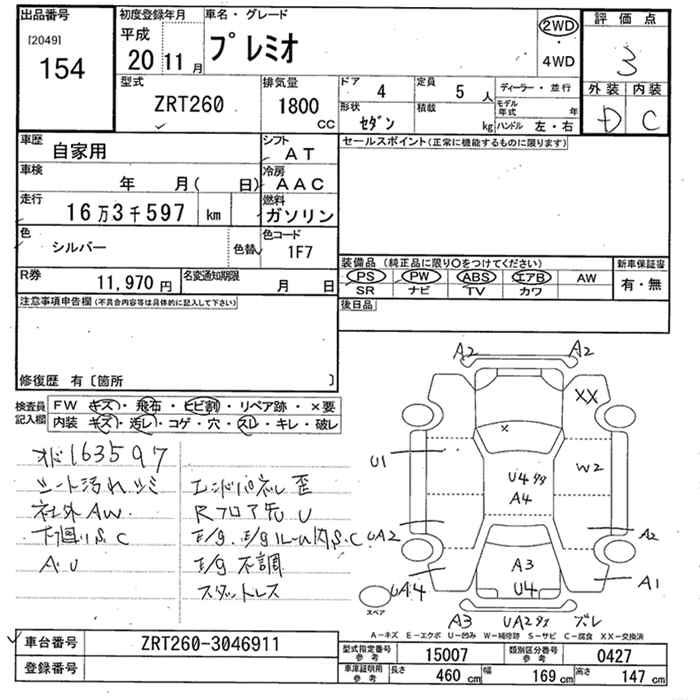 出品番号
[2049]
154
初度登録年月
平成
20 11月
車名・グレード
プレミオ
2WD
4WD
評価点
3
外装 内装
D C
型式
ZRT260
排気量
1800
CC
ドア 4
定員 5人
形状 セダン
積載 kg
ディーラー・並行
モデル年式 年
ハンドル 左・右
車歴
自家用
シフト
AT
車検
年 月( 日)
冷房
AAC
走行
16万3千597 km
燃料
ガソリン
色
シルバー
色替
色コード
1F7
R券
11,970円
名変通知期限
月 日
セールスポイント(正常に機能するものに限ります)
装備品(純正品に限り○をつけてください)
PS PW ABS エアB AW
SR ナビ TV カワ
新車保証書
有・無
後日品
注意事項申告欄(不具合内容等は具体的に記入して下さい)
修復歴 有〔箇所 〕
検査員記入欄
FW キズ・飛石・ヒビ割・リペア跡・×要
内装 キズ・汚レ・コゲ・穴・スレ・キレ・破レ
オド163597
シート汚れシミ
社外AW
下廻りS.C
AU
エンドパネル歪
Rフロア先U
E/g. E/gルーム内S.C
E/g不調
スタットレス
A2
A2
XX
×
U1
W2
U4
A4
UA2
A2
A3
U4
UA4
A1
スペア
A3
UA2
ズレ
A-キズ E-エクボ U-凹み W-補修跡 S-サビ C-腐食 XX-交換済
車台番号
ZRT260-3046911
登録番号
型式指定番号 参考
15007
類別区分番号 参考
0427
車庫証明用 参考
長さ 460 cm
幅 169 cm
高さ 147 cm